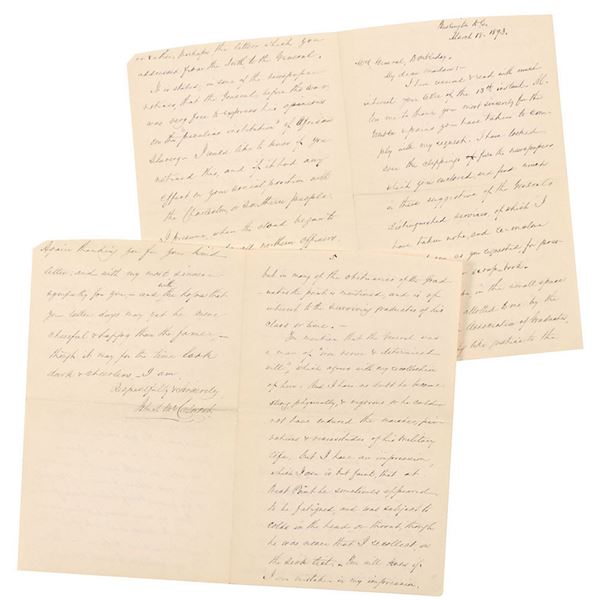 Washington D.C.
March 18, 1893.
Mrs General Doubleday.
My dear Madam:—
I have received & read with much
interest your letter of the 13th instant. Al-
low me to thank you most sincerely for the
trouble & pains you have taken to com-
ply with my request. I have looked
over the clippings from the newspapers
which you enclosed, and find much
in them suggestive of the General's
distinguished services of which I
have taken note, and
as you requested for
scrap-book.
in the small space
allotted to me by the
Association of Graduates,
like justice to the
or & this, perhaps the letters which you
addressed from the South to the General.
It is stated, in some of the newspaper
notices, that the General, before the war,
was very free to express his opinions
on the "peculiar institution" of African
Slavery. I would like to know if you
noticed this, and, if it had any
effect on your social position with
the Charleston, or Southern people.
I presume, when the cloud began to
northern officers
5
but in many of the obituaries of the Grad-
uates the fact is mentioned, and is of
interest to the surviving graduates of his
class or time.—
You mention that the General was
a man of iron nerve & determined
will, which agrees with my recollection
of him. And I have no doubt he became
strong, physically, & vigorous or he could
not have endured the marches,
& vicissitudes of his military
life; but I have an impression,
which I own is but faint, that at
West Point he sometimes appeared
to be fatigued, and was subject to
colds in the head or throat, though
he was never that I recollect, on
the sick list. You will know if
I am mistaken in my impression.
Again thanking you for your kind
letter, and with my most sincere
sympathy for you — and with the hopes that
your latter days may yet be more
cheerful & happy than the former,—
though it may for the time look
dark & cheerless — I am
Respectfully & Sincerely